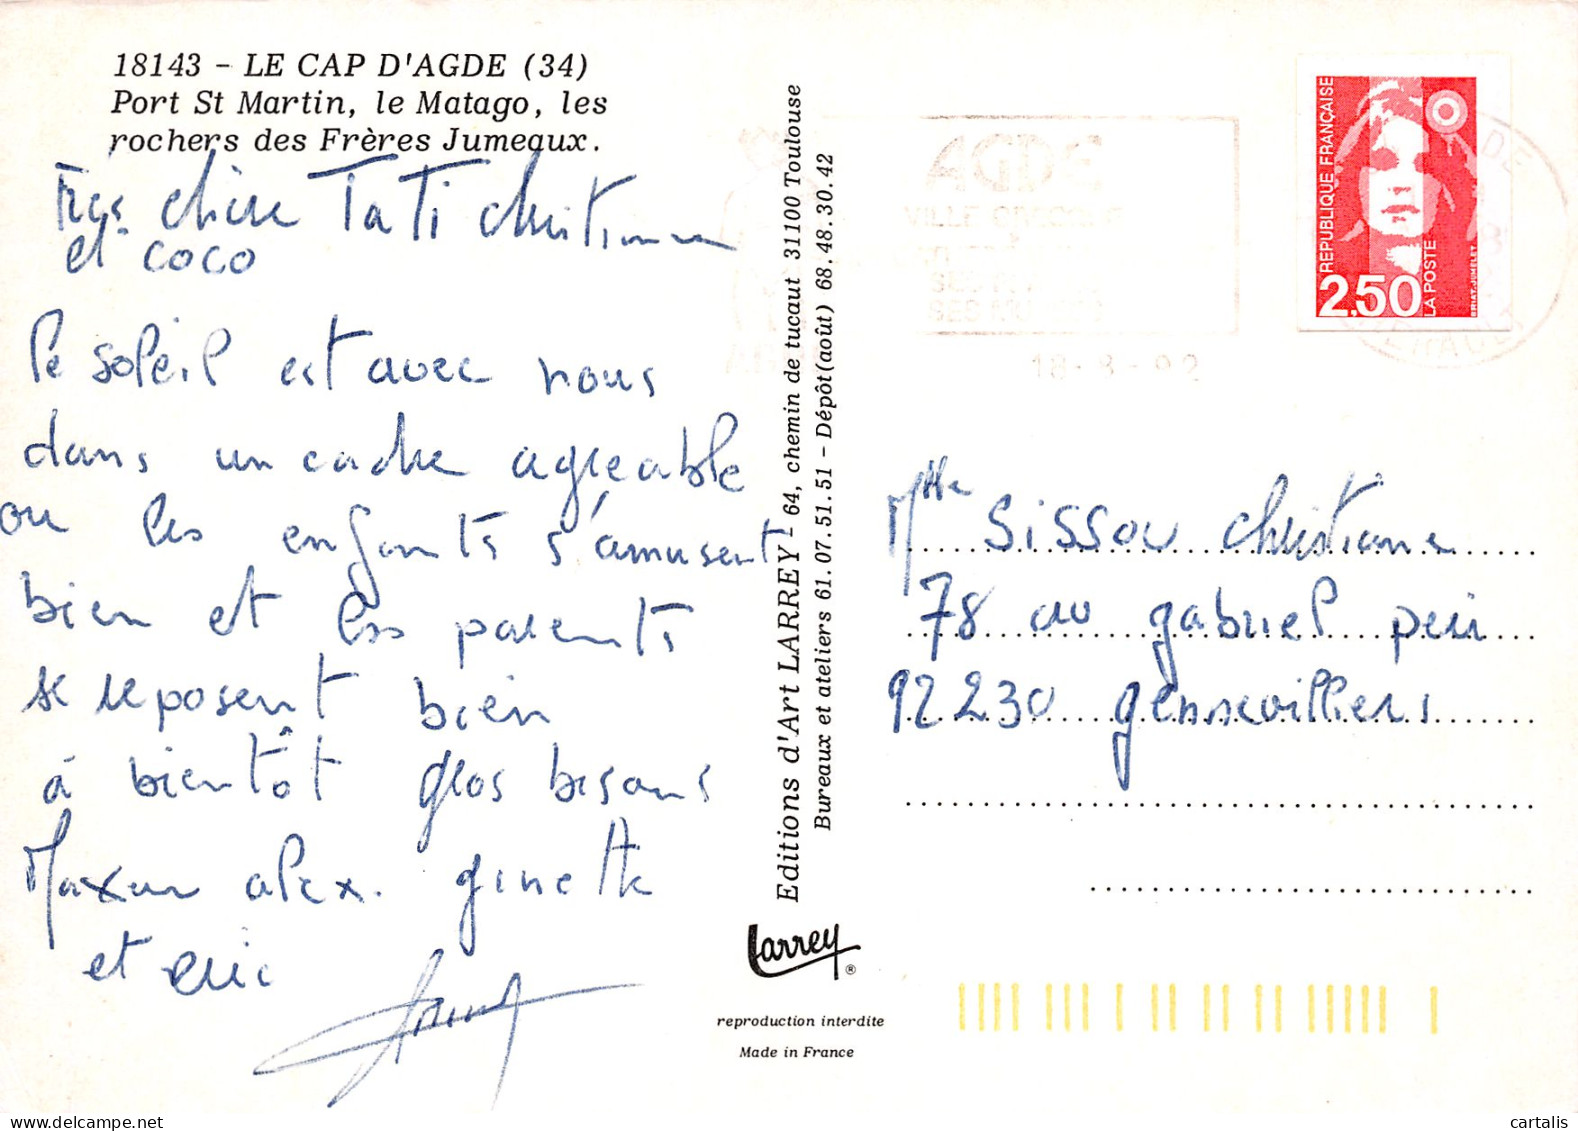 18143 - LE CAP D'AGDE (34)
Port St Martin, le Matago, les
rochers des Frères Jumeaux.
Très chère Tati Christianne
et coco
le soleil est avec nous
dans un cadre agréable
ou les enfants s'amusent
bien et les parents
se reposent bien
à bientôt gros bisous
Maxime alex. ginette
et eric
Editions d'Art LARREY - 64, chemin de tucaut 31100 Toulouse
Bureaux et ateliers 61.07.51.51 - Dépôt(août) 68.48.30.42
Larrey ®
reproduction interdite
Made in France
AGDE
VILLE
SES
18-8-92
REPUBLIQUE FRANÇAISE
2,50
LA POSTE
BRIAT-JUMELET
DE
HERAULT
Mlle Sissou Christiane
78 av gabriel peri
92230 gennevilliers
cartalis.com